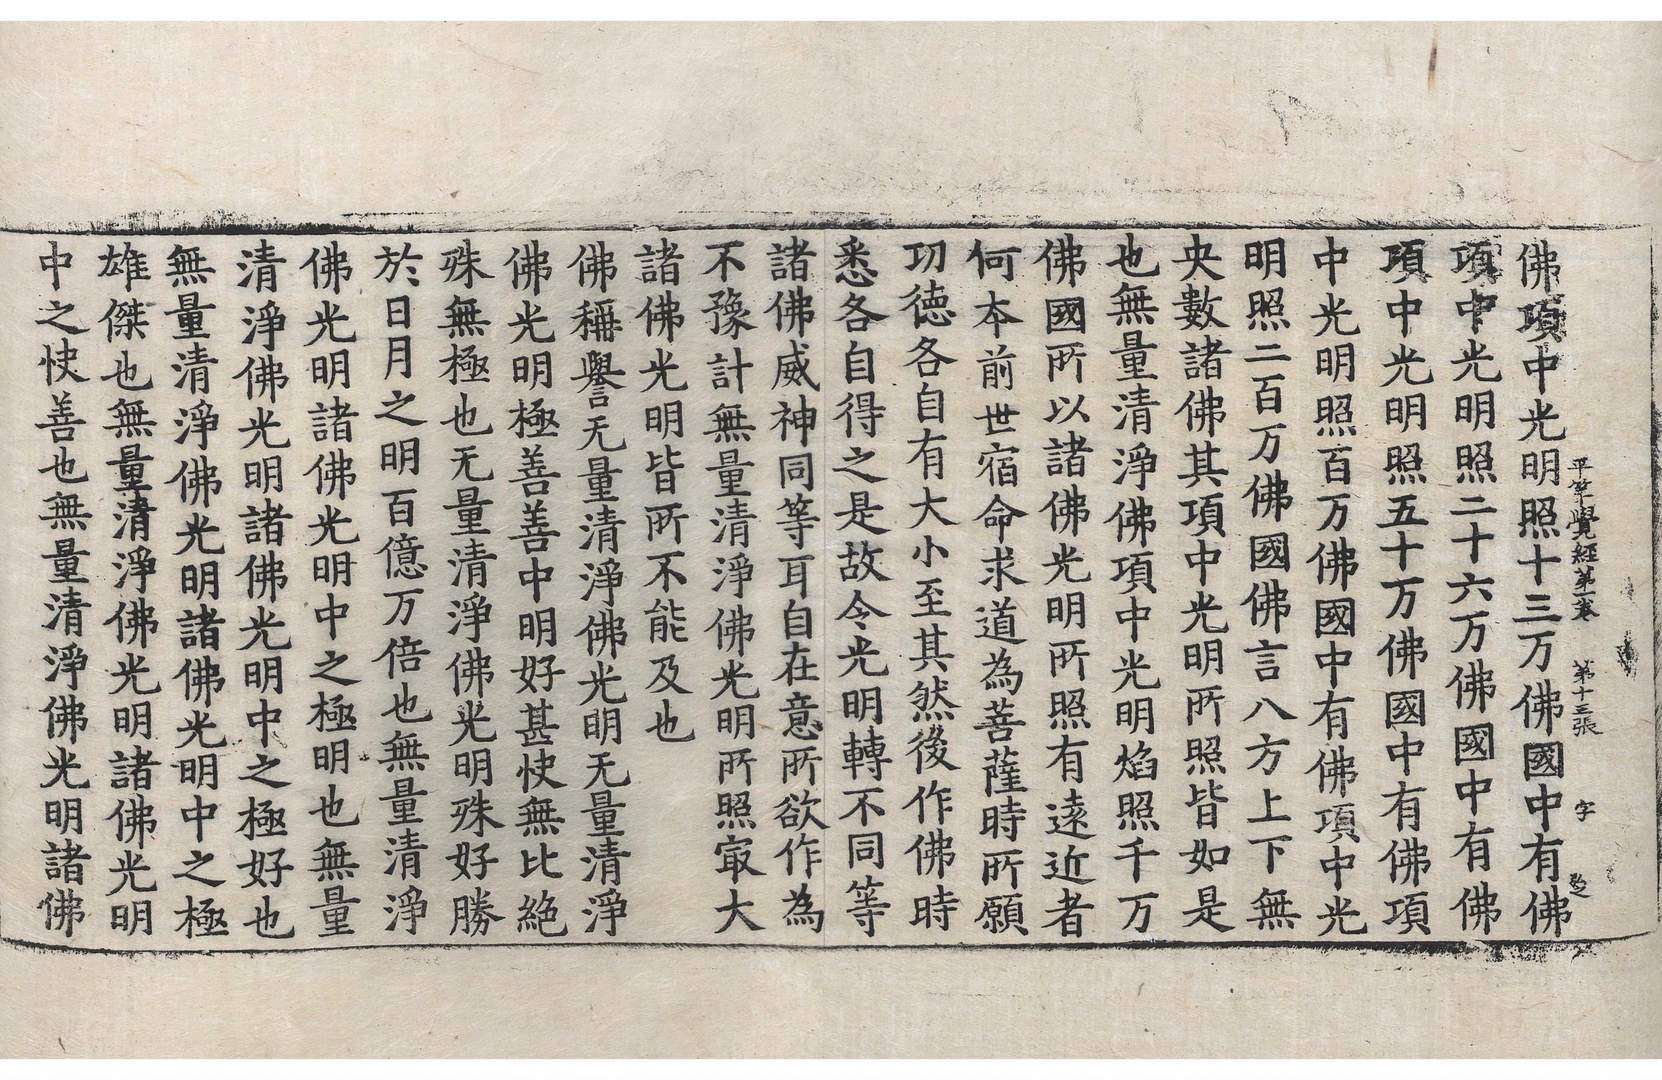 平等覺經第一卷 第十三張 字
佛項中光明照十三万佛國中有佛
項中光明照二十六万佛國中有佛
項中光明照五十万佛國中有佛項
中光明照百万佛國中有佛項中光
明照二百万佛國佛言八方上下無
央數諸佛其項中光明所照皆如是
也無量清淨佛項中光明焰照千万
佛國所以諸佛光明所照有遠近者
何本前世宿命求道為菩薩時所願
功德各自有大小至其然後作佛時
悉各自得之是故令光明轉不同等
諸佛威神同等耳自在意所欲作為
不豫計無量清淨佛光明所照㝡大
諸佛光明皆所不能及也
佛稱譽无量清淨佛光明无量清淨
佛光明極善善中明好甚快無比絕
殊無極也无量清淨佛光明殊好勝
於日月之明百億万倍也無量清淨
佛光明諸佛光明中之極明也無量
清淨佛光明諸佛光明中之極好也
無量清淨佛光明諸佛光明中之極
雄傑也無量清淨佛光明諸佛光明
中之快善也無量清淨佛光明諸佛